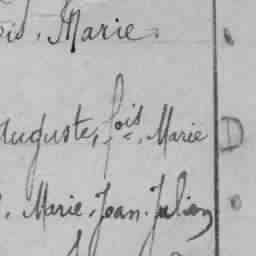 is. Marie.
Auguste, fois. Marie D
. Marie. Jean. Julien